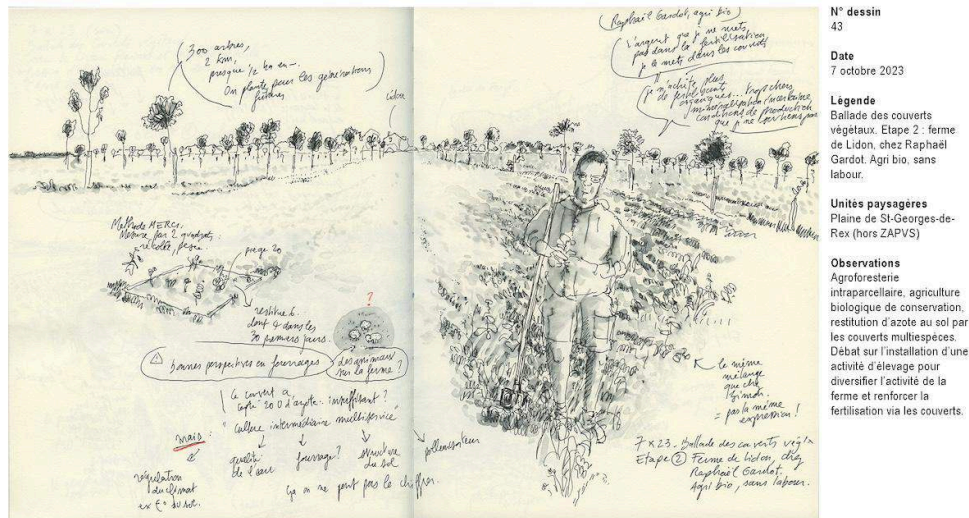 300 arbres,
2 km,
presque 1/2 km en
On plante pour les générations
futures
Lidon
(Raphaël Gardot, agri bio)
L'argent que je ne mets
pas dans la fertilisation
je le mets dans les couverts
Je n'achète plus
de fertilisants
organiques... trop chers
conditions de production
que je ne
Méthode MERCI.
Mesure par 2 quadrats :
récolte, pesée
piège 20
restitue 6
dont 4 dans les
30 premiers jours.
?
bonnes perspectives en fourrages
des animaux
sur la ferme ?
Ce couvert a
capté 20 U d'azote : insuffisant ?
"Culture intermédiaire multiservice"
mais :
régulation
du climat
ex t° du sol.
qualité
de l'eau
fourrage ?
structure
du sol
pollinisateur
Ça on ne peut pas le chiffrer.
le même
mélange
que chez
Simon
= pas la même
expression !
7 X 23. Ballade des couverts végétx
Etape 2 Ferme de Lidon, chez
Raphaël Gardot.
Agri bio, sans labour.
N° dessin
43
Date
7 octobre 2023
Légende
Ballade des couverts
végétaux. Etape 2 : ferme
de Lidon, chez Raphaël
Gardot. Agri bio, sans
labour.
Unités paysagères
Plaine de St-Georges-de-
Rex (hors ZAPVS)
Observations
Agroforesterie
intraparcellaire, agriculture
biologique de conservation,
restitution d'azote au sol par
les couverts multiespèces.
Débat sur l'installation d'une
activité d'élevage pour
diversifier l'activité de la
ferme et renforcer la
fertilisation via les couverts.